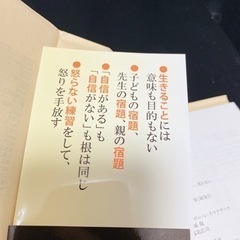 ●生きることには
意味も目的もない
●子どもの宿題、
先生の宿題、親の宿題
●「自信がある」も
「自信がない」も根は同じ
●怒らない練習をして、
怒りを手放す